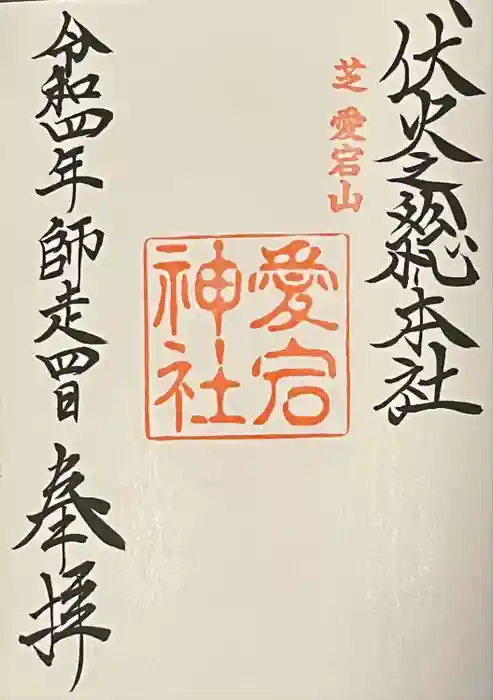 伏火之総本社
芝 愛宕山
愛宕
神社
令和四年 師走 四日 奉拝